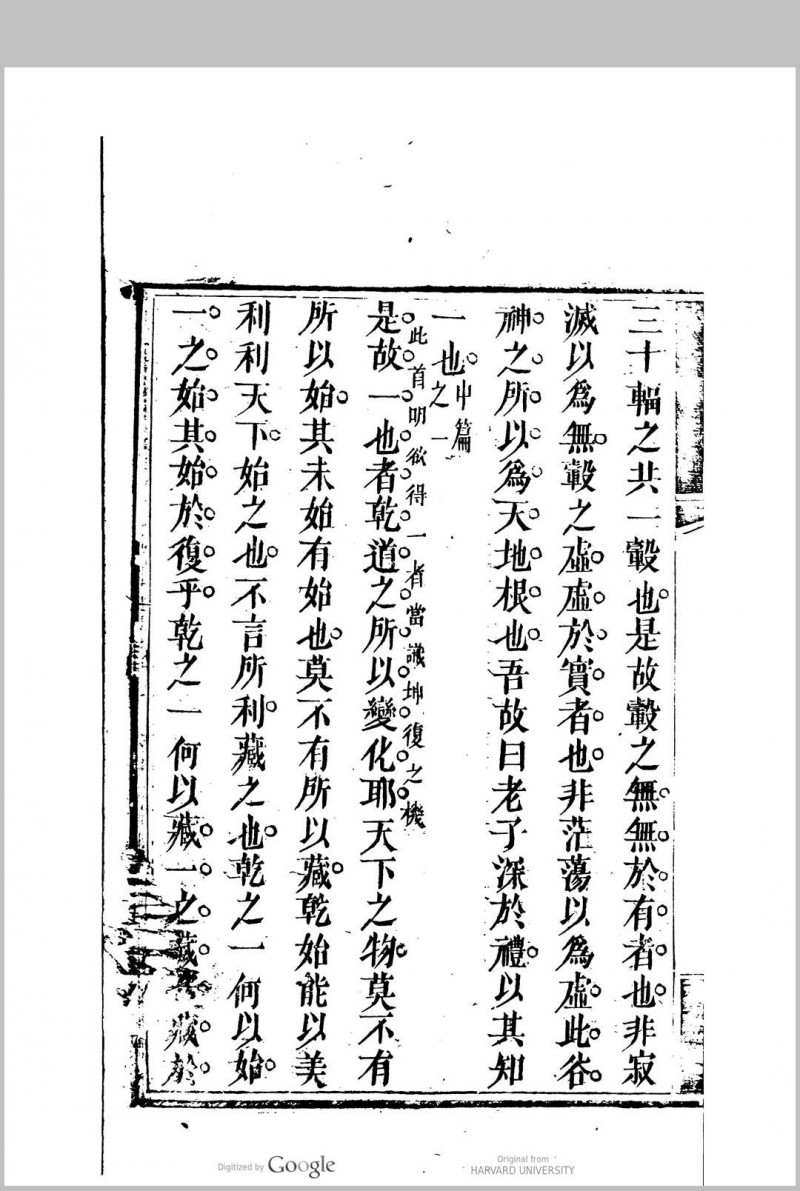 三十輻之共一轂也是故轂之無無於有者也非寂
滅以爲無轂之虛虛於實者也非茫蕩以爲虛此谷
神之所以爲天地根也吾故曰老子深於禮以其知
一也
中篇
之一
此首明欲得一者當識坤復之機
是故一也者乾道之所以變化耶天下之物莫不有
所以始其未始有始也莫不有所以藏乾始能以美
利利天下始之也不言所利藏之也乾之一何以始
一之始其始於復乎乾之一何以藏一之藏其藏於
Digitized by Google
Original from
HARVARD UNIVERSITY